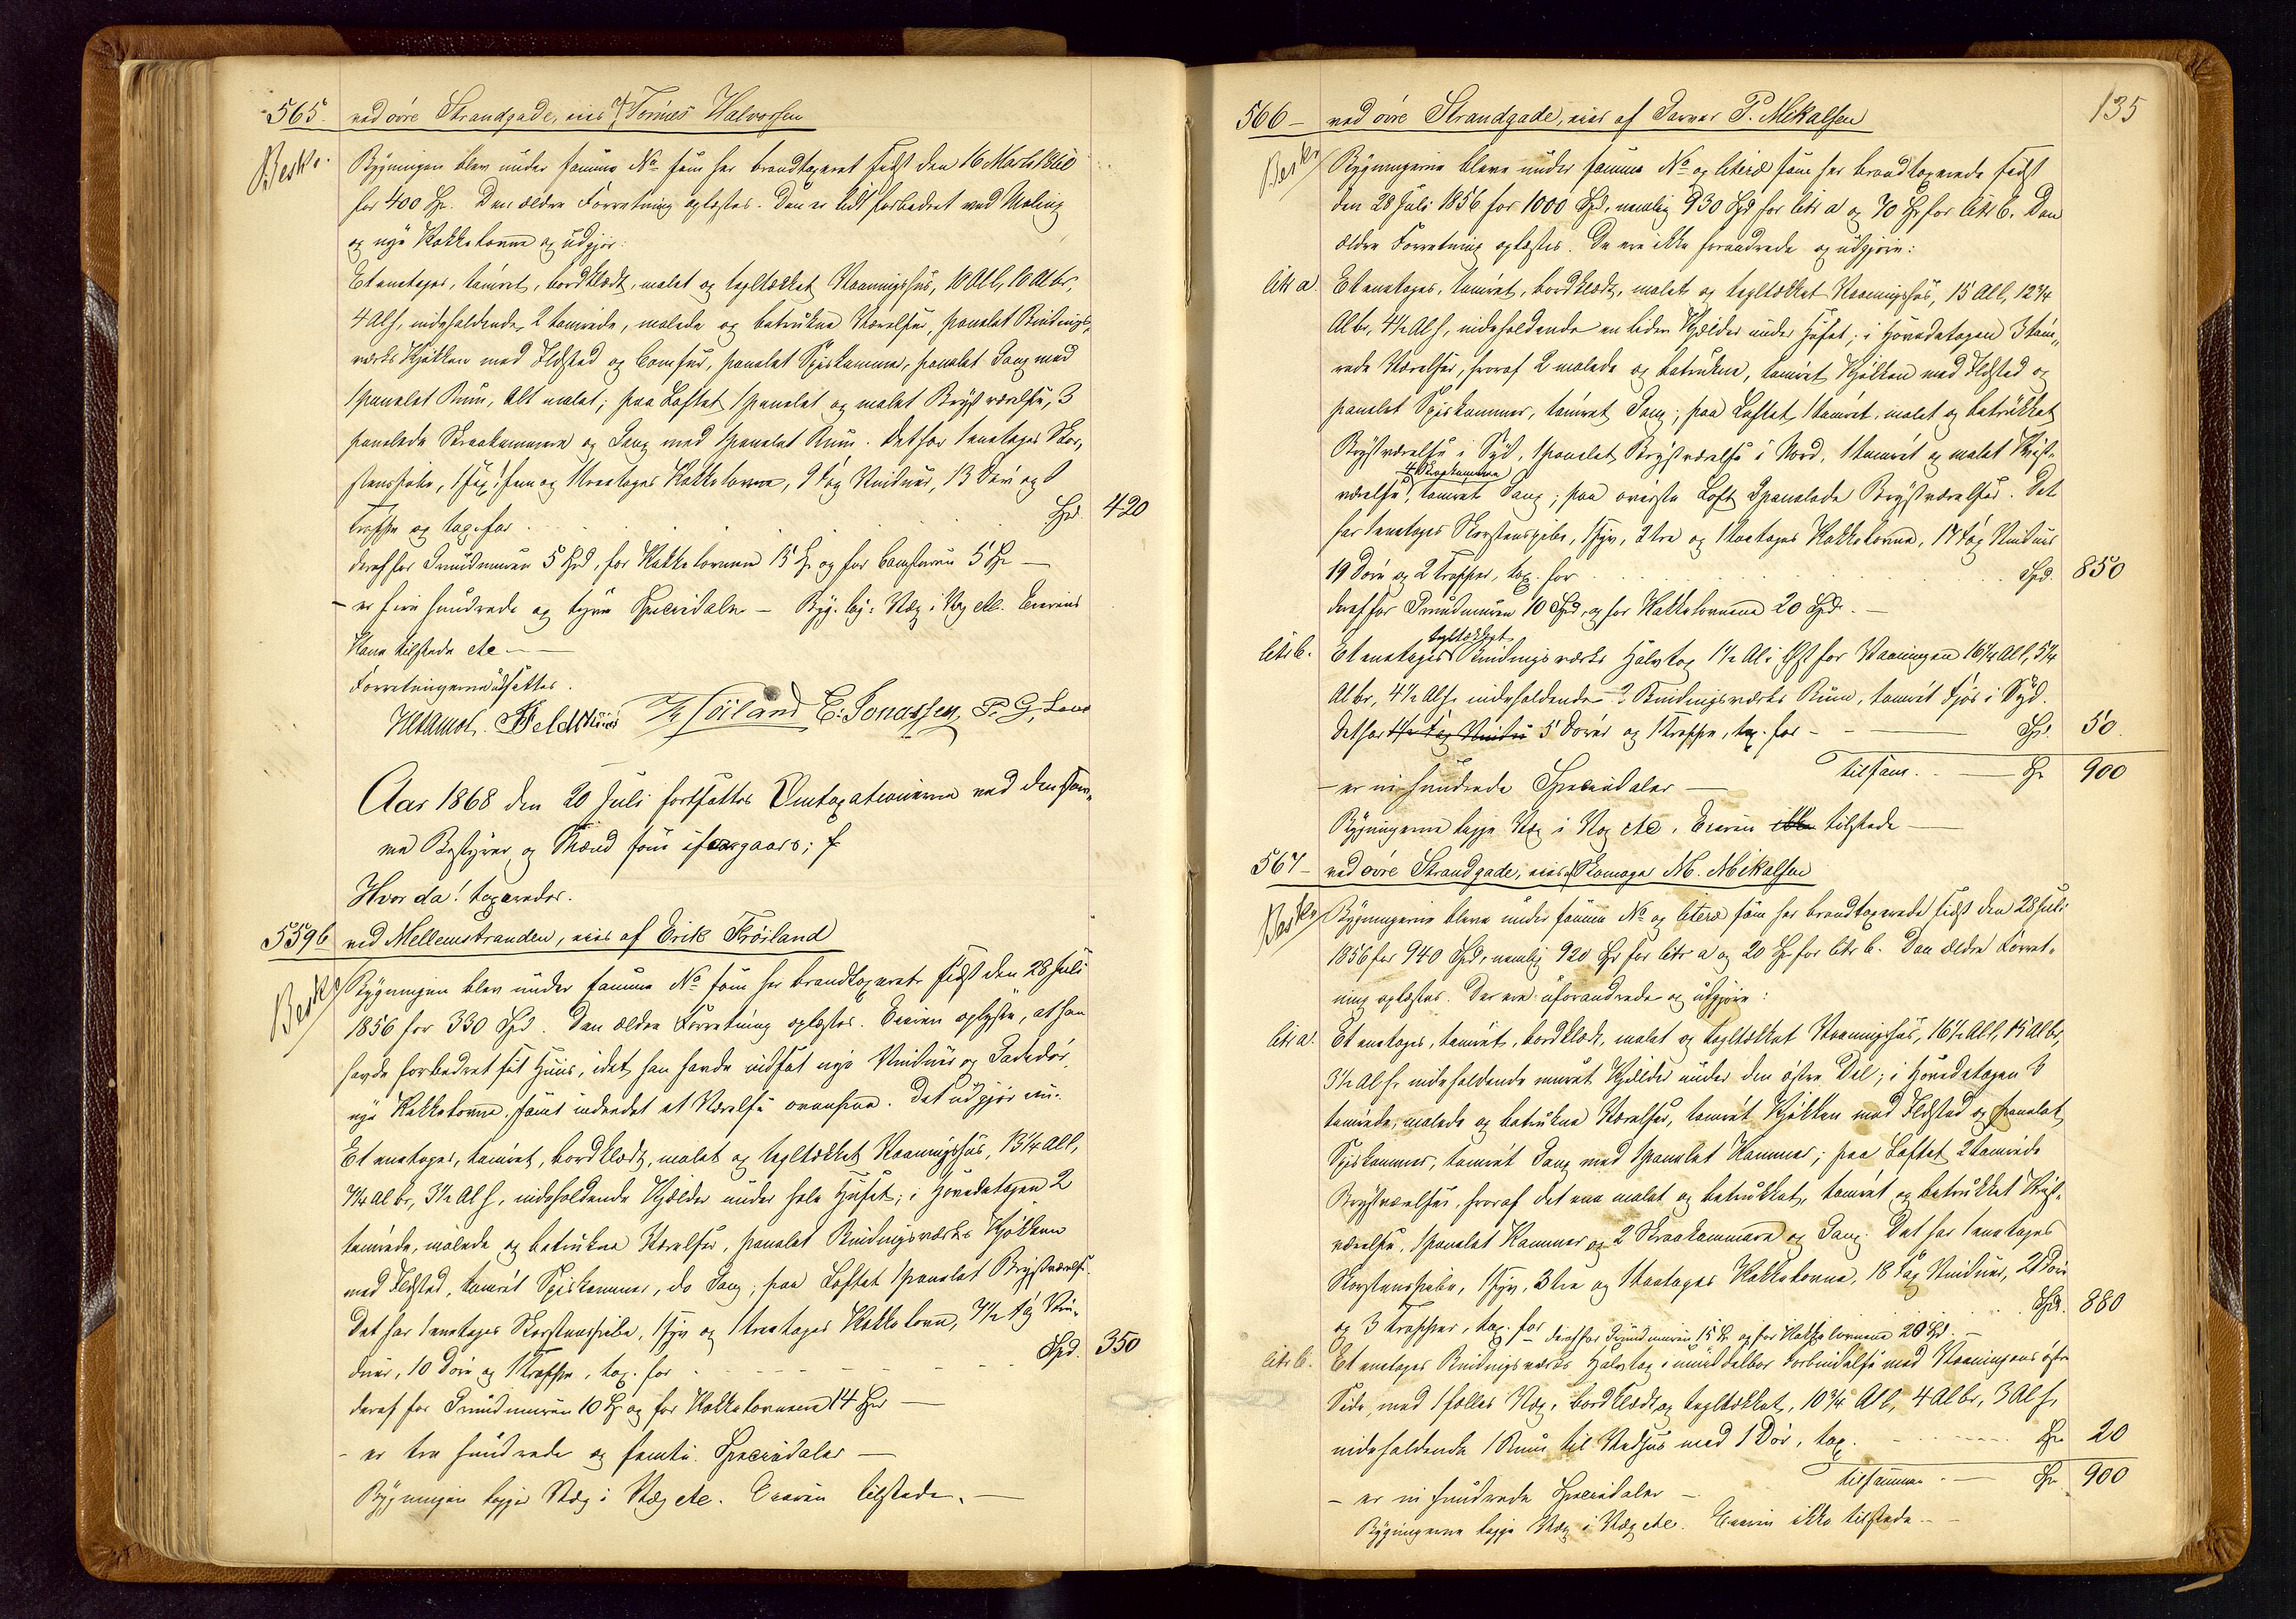 565. ved øvre Strandgade, eies af Tønnes Halvorsen
Beskr. Bygningen blev under samme No som her brandtaxeret sidst den 16 Marts 1860
for 400 Sp. Den ældre Forretning oplæstes. Den er lidt forbedret ved Maling
og nye Kakkelovne og udgjør:
Et enetages, tømret, bordklædt, malet og tegltækket Vaaningshus, 10 Al l, 10 Al br,
4 Al h, indeholdende 2 tømrede, malede og betrukne Værelser, panelet Bindings-
værks Kjøkken med Ildsted og Comfur, panelet Spiskammer, panelet Gang med
1 panelet Rum, Alt malet; paa Loftet 1 panelet og malet Brystværelse, 3
panelede Skraakammere og Gang med 1 panelet Rum. Det har 1 enetages Skor-
stenspibe, 1 fem og 1 treetages Kakkelovne, 9 Fag Vinduer, 13 Døre og 1
Trappe og tax. for Spd. 420
deraf for Grundmuren 5 Spd, for Kakkelovnene 15 Sp og for Comfuren 5 Sp —
- er fire hundrede og tyve Speciedaler - Byg. ligg. Væg i Væg etc. Eierens
Kone tilstede etc —
Forretningerne udsattes.
Aar 1868 den 20 Juli fortsattes Omtaxationerne ved den sam-
me Bestyrer og Mænd som iforgaars;
Hvorda! taxeredes.
559 b ved Mellemstranden, eies af Erik Frøiland
Beskr Bygningen blev under samme No som her brandtaxeret sidst den 28 Juli
1856 for 330 Spd. Den ældre Forretning oplæstes. Eieren oplyste, at han
havde forbedret sit Huus, idet han havde indsat nye Vinduer og Gadedør,
nye Kakkelovne, samt indredet et Værelse ovenpaa. Det udgjør nu:
Et enetages, tømret, bordklædt, malet og tegltækket Vaaningshus, 13 1/4 Al l,
7 1/4 Al br, 3 1/2 Al h, indeholdende Kjælder under hele Huset; i Hovedetagen 2
tømrede, malede og betrukne Værelser, panelet Bindingsværks Kjøkken
med Ildsted, tømret Spiskammer, do Gang; paa Loftet 1 panelet Brystværelse.
Det har 1 enetages Skorstenspibe, 1 fyr og 1 treetages Kakkelovn, 7 1/2 Fag Vin-
duer, 10 Døre og 1 Trappe, tax. for Spd. 350
deraf for Grundmuren 10 Sp og for Kakkelovnene 14 Spd —
- er tre hundrede og femti Speciedaler —
Bygningen ligge Væg i Væg etc. Eieren tilstede. —
135
566 - ved øvre Strandgade, eies af Garver P. Mikalsen
Beskr Bygningerne bleve under samme No og litera som her brandtaxerede sidst
den 28 Juli 1856 for 1000 Spd, nemlig 930 Spd for litr a og 70 Sp for litr b. Den
ældre Forretning oplæstes. De ere ikke forandrede og udgjøre:
litr a. Et enetages, tømret, bordklædt, malet og tegltækket Vaaningshus, 15 Al l, 12 3/4
Al br, 4 1/2 Al h, indeholdende en liden Kjælder under Huset; i Hovedetagen 3 tøm-
rede Værelser, hvoraf 2 malede og betrukne, tømret Kjøkken med Ildsted og
panelet Spiskammer, tømret Gang; paa Loftet 1 tømret, malet og betrukket
Brystværelse i Syd, 1 panelet Brystværelse i Nord, 1 tømret og malet Kvist-
værelse, 4 Skraakammere, tømret Gang; paa øverste Loft 2 panelede Brystværelser. Det
har 1 enetages Skorstenspibe, 1 fyr, 2 tre og 1 toetages Kakkelovne, 17 Fag Vinduer
19 Døre og 2 Trapper, tax. for Spd. 850
deraf for Grundmuren 10 Spd, og for Kakkelovnene 20 Spd. —
litr b. Et enetages tegltækket Bindingsværks Halvtag 1 1/2 Al i Øst for Vaaningen 16 1/4 Al l, 5 1/4
Al br, 4 1/2 Al h, indeholdende 2 Bindingsværks Rum, tømret Fjøs i Syd.
Det har 5 Dører og 1 Trappe, tax. for Sp. 50.
tilsam. Sp 900
- er ni hundrede Speciedaler —
Bygningerne ligge Væg i Væg etc. Eieren ikke tilstede —
567 - ved øvre Strandgade, eies af Skomager M. Mikalsen
Beskr Bygningerne bleve under samme No og litera som her brandtaxerede sidst den 28 Juli
1856 for 940 Spd, nemlig 920 Sp for litr a og 20 Sp for litr b. Den ældre Forret-
ning oplæstes. Der ere uforandrede og udgjøre:
litr a. Et enetages, tømret, bordklædt, malet og tegltækket Vaaningshus, 16 1/2 Al l, 15 Al br,
3 1/2 Al h, indeholdende muret Kjælder under den østre Del; i Hovedetagen 3
tømrede, malede og betrukne Værelser, tømret Kjøkken med Ildsted og panelet
Spiskammer, tømret Gang med 1 panelet Kammer; paa Loftet 2 tømrede
Brystværelser, hvoraf det ene malet og betrukket, tømret og betrukket Kvist-
værelse, 1 panelet Kammer og 2 Skraakammere og Gang. Det har 1 enetages
Skorstenspibe, 1 fyr, 3 tre og 1 toetages Kakkelovne, 18 Fag Vinduer, 21 Døre
og 3 Trapper, tax. for Spd. 880
deraf for Grundmuren 15 Sp og for Kakkelovnene 20 Spd. —
litr b. Et enetages Bindingsværks Halvtag i umiddelbar Forbindelse med Vaaningens østre
Side, med 1 fælles Væg, bordklædt og tegltækket, 10 3/4 Al l, 4 Al br, 3 Al h,
indeholdende 1 Rum til Vedhus med 1 Dør, tax. Sp 20
tilsammen Sp 900
- er ni hundrede Speciedaler —
Bygningerne ligge Væg i Væg etc. Eieren ikke tilstede —